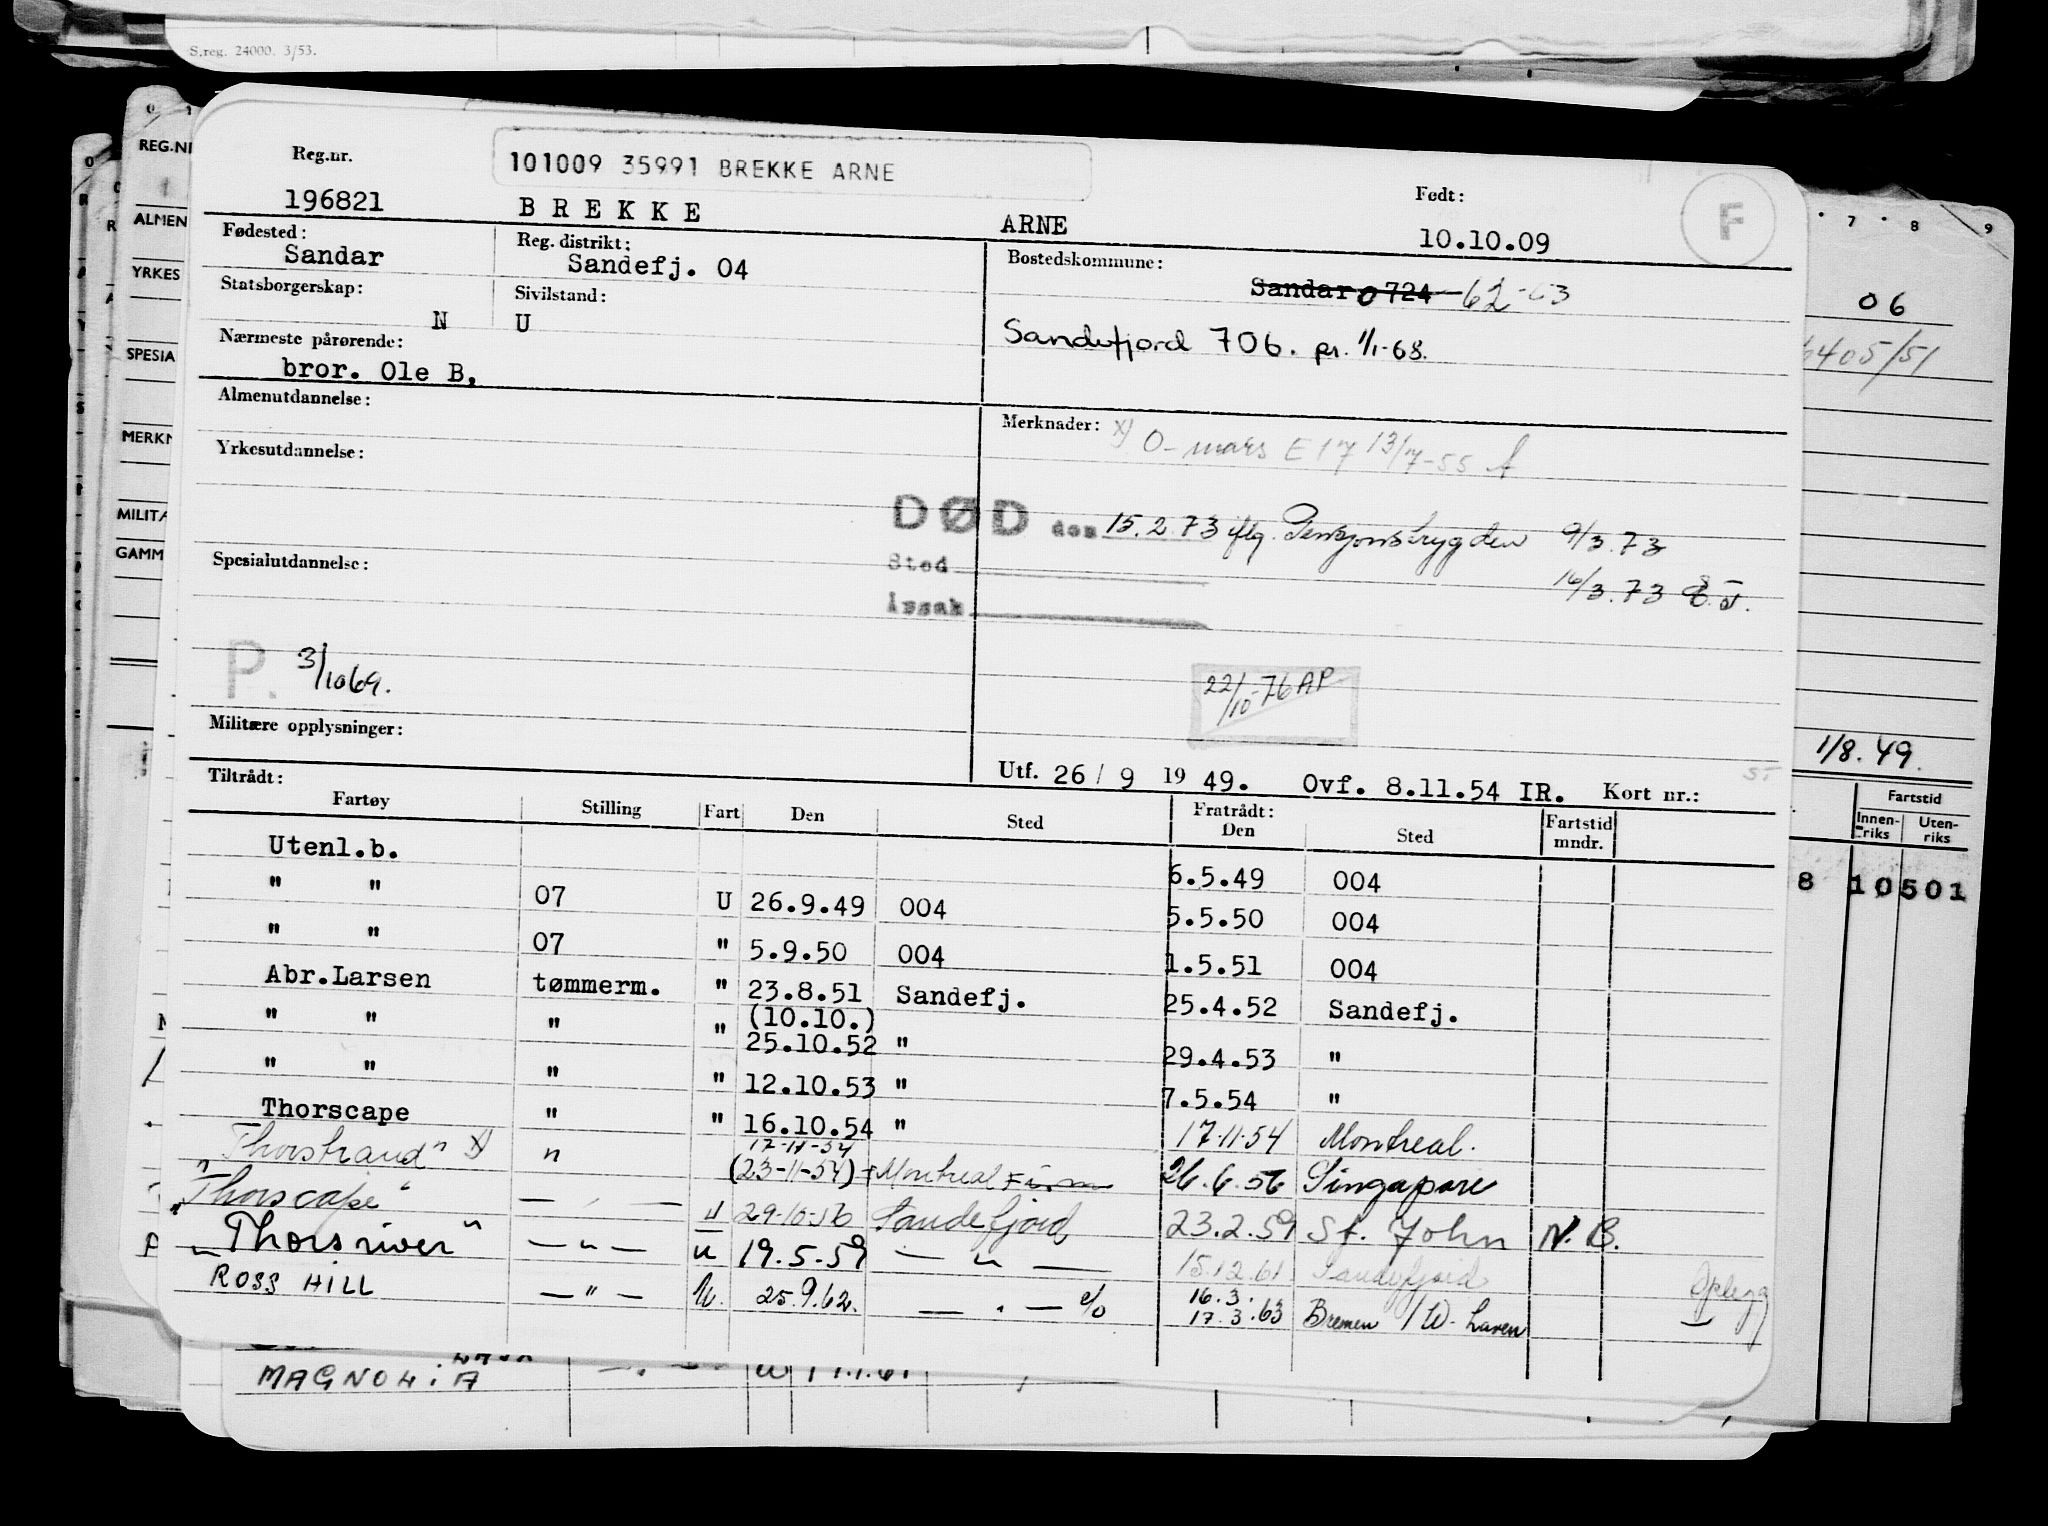 S.reg. 24000. 3/53.
Reg.nr.
101009 35991 BREKKE ARNE
Født:
F
196821 BREKKE ARNE 10.10.09
Fødested: Sandar
Reg. distrikt: Sandefj. 04
Bostedskommune: Sandar 0724 62-63
Statsborgerskap: N
Sivilstand: U
Sandefjord 706. pr. 1/1-68.
Nærmeste pårørende: bror. Ole B,
Almenutdannelse:
Merknader: x) O-mars E17 13/7-55
Yrkesutdannelse:
DØD den 15.2.73 iflg. Pensjonstrygden 9/3.73
Sted 16/3.73
Årsak
Spesialutdannelse:
P. 3/1069.
22/10-76 AP
Militære opplysninger:
Utf. 26/9 1949. Ovf. 8.11.54 IR. Kort nr.:
Tiltrådt: Fratrådt:
Fartøy Stilling Fart Den Sted Den Sted Fartstid mndr.
Utenl.b. 6.5.49 004
" " 07 U 26.9.49 004 5.5.50 004
" " 07 " 5.9.50 004 1.5.51 004
Abr.Larsen tømmerm. " 23.8.51 Sandefj. 25.4.52 Sandefj.
" " " " (10.10.) 25.10.52 " 29.4.53 "
" " " " 12.10.53 " 7.5.54 "
Thorscape " " 16.10.54 " 17.11.54 Montreal.
"Thorstrand" x) " 17-11-54 (23-11-54) Montreal 26.6.56 Singapore
"Thorscape" — " — " 29-10-56 Sandefjord 23.2.59 St. John N.B.
"Thorsriver" — " — u 19.5.59 — " — 15.12.61. Sandefjord Opplegg
ROSS HILL — " — U. 25.9.62. — " — 16.3. 17.3.63 Bremen / W-haven
MAGNOLIA
REG.NR
ALMEN
YRKES
SPESIA
MERKN
MILITÆ
GAMM
7 8 9
06
6405/51
1/8.49.
Fartstid
Innen-riks Uten-riks
8 10501